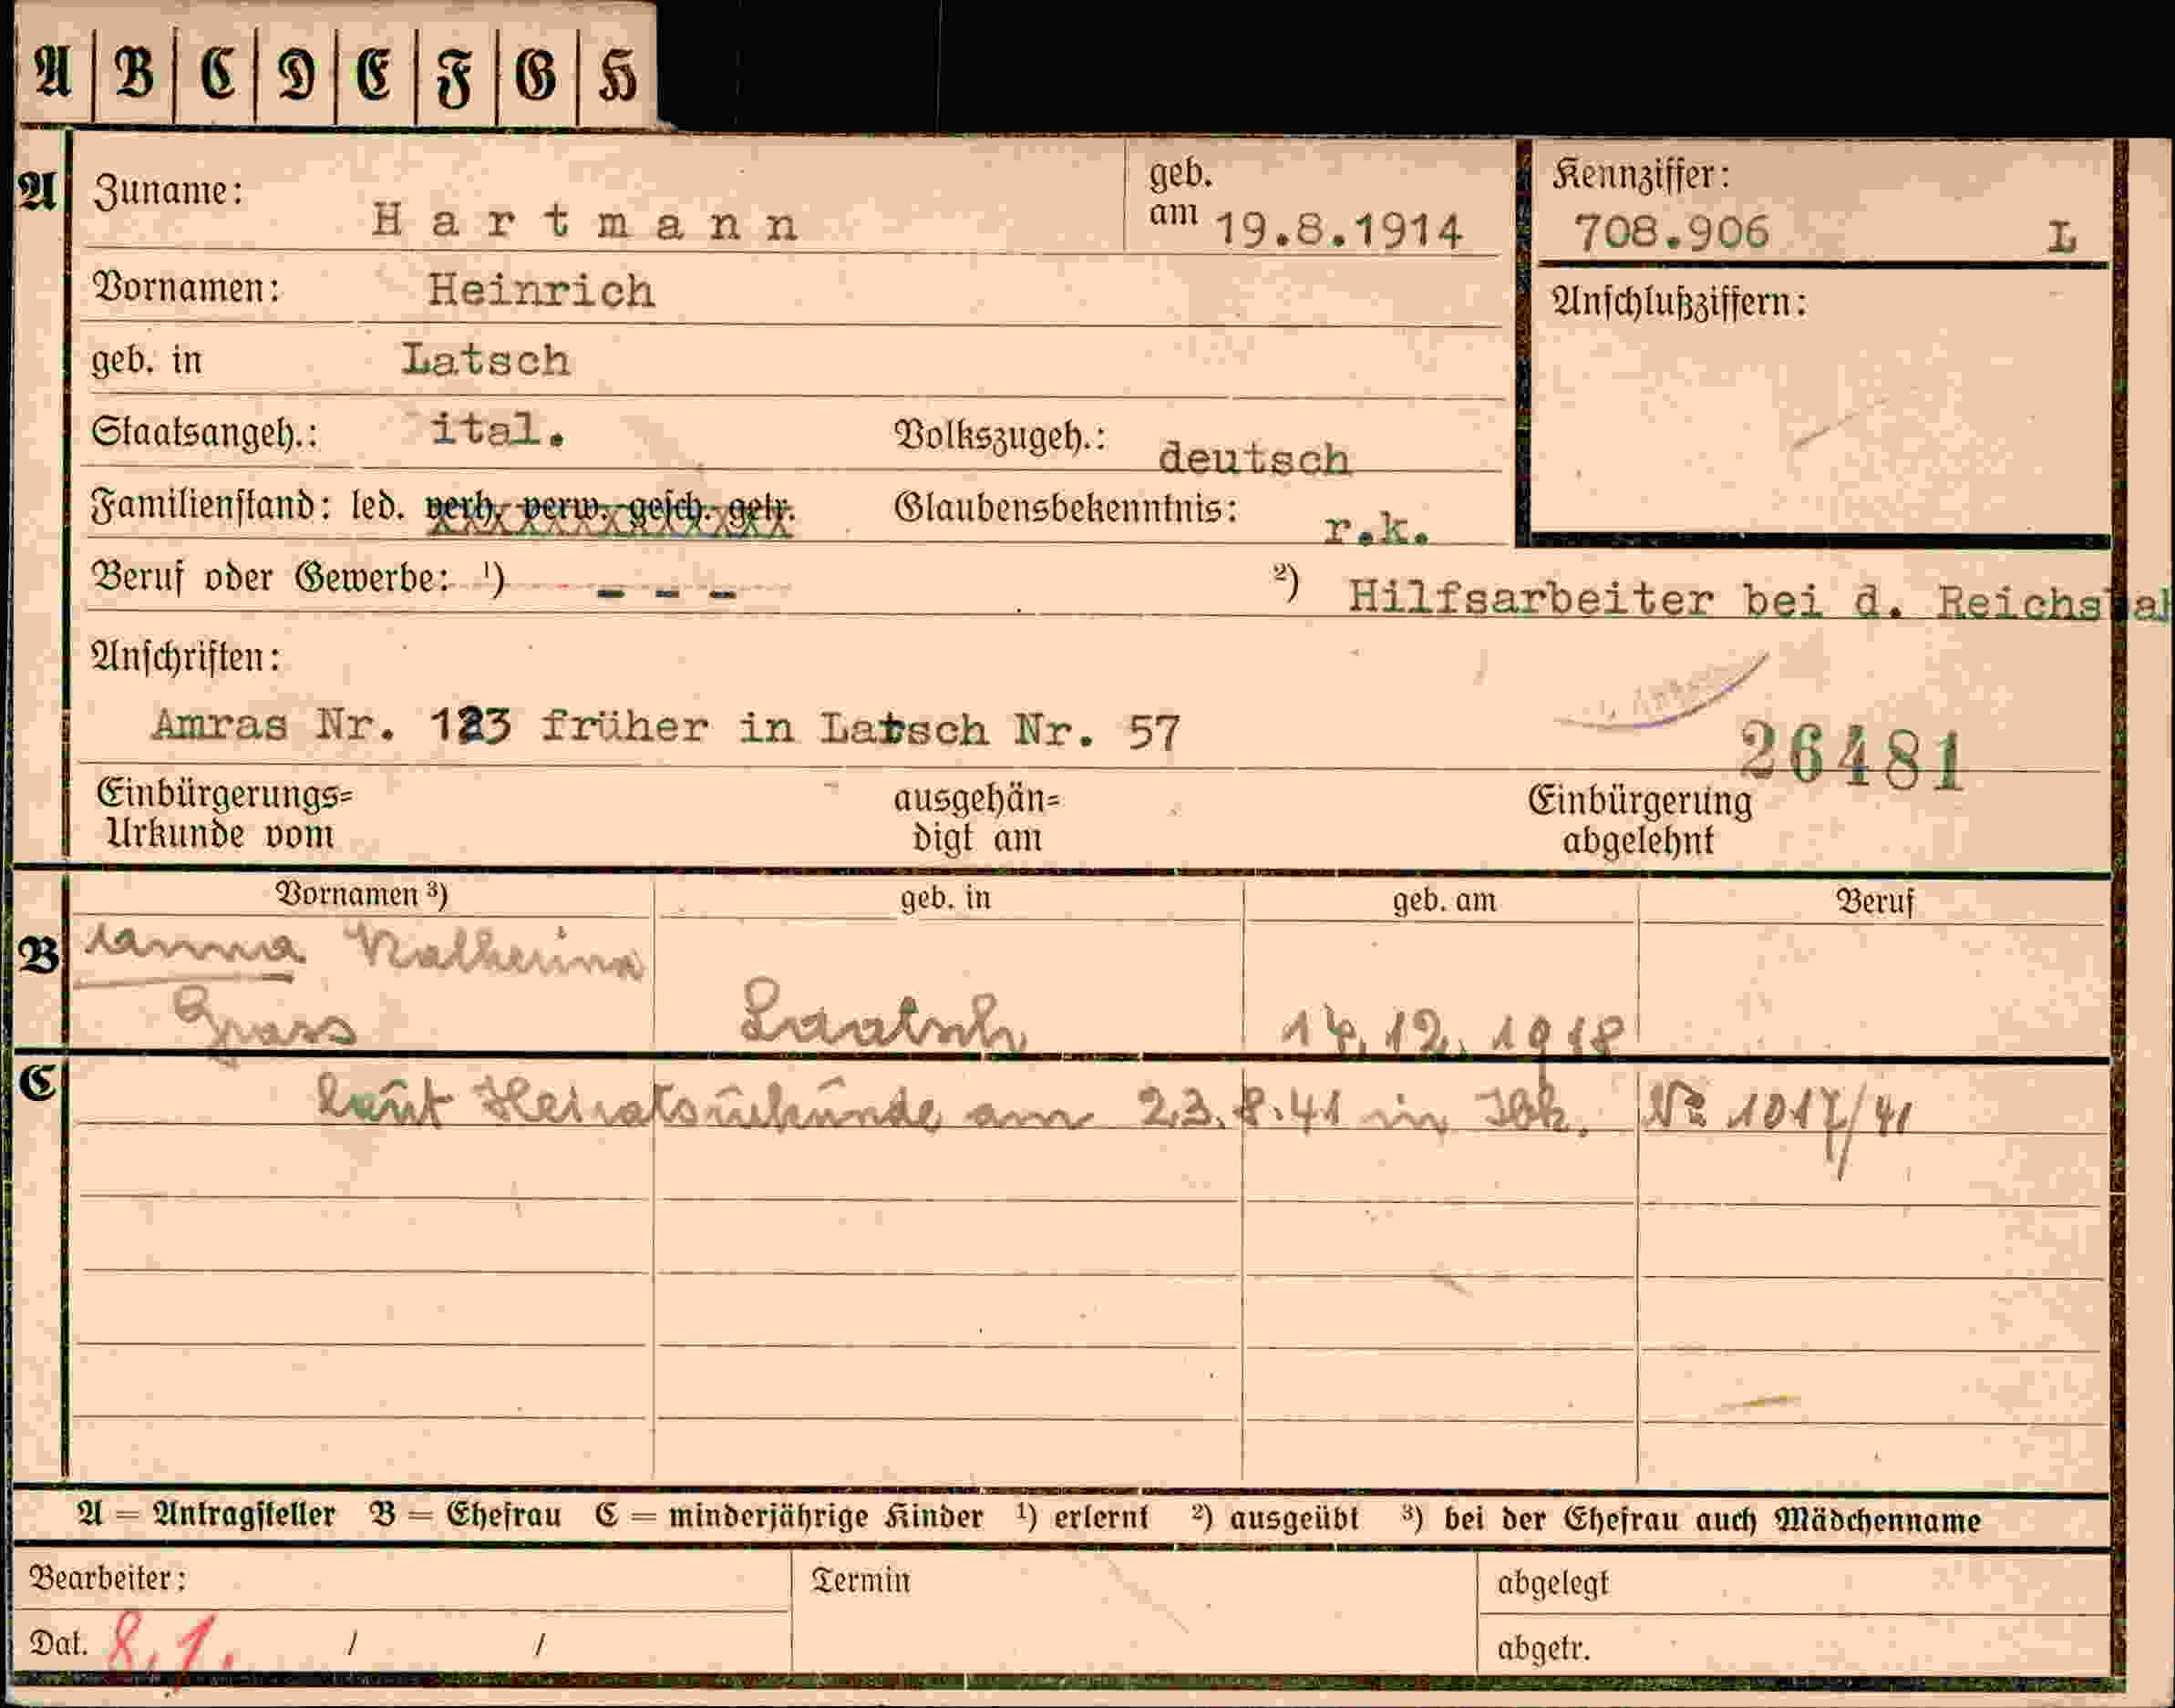 A B C D E F G H
A Zuname: Hartmann geb. am 19.8.1914 Kennziffer: 708.906 L
Vornamen: Heinrich Anschlußziffern:
geb. in Latsch
Staatsangeh.: ital. Volkszugeh.: deutsch
Familienstand: led. verh. verw. gesch. getr. Glaubensbekenntnis: r.k.
Beruf oder Gewerbe: ¹) - - - ²) Hilfsarbeiter bei d. Reichsbah
Anschriften:
Amras Nr. 123 früher in Latsch Nr. 57
26481
Einbürgerungs= ausgehän= Einbürgerung
Urkunde vom digt am abgelehnt
Vornamen ³) geb. in geb. am Beruf
B Katherina
Grass Laatsch 14.12.1918
C laut Heiratsurkunde am 23.8.41 in Ibk. No 1017/41
A = Antragsteller B = Ehefrau C = minderjährige Kinder ¹) erlernt ²) ausgeübt ³) bei der Ehefrau auch Mädchenname
Bearbeiter: Termin abgelegt
Dat. 8.1. / / abgetr.